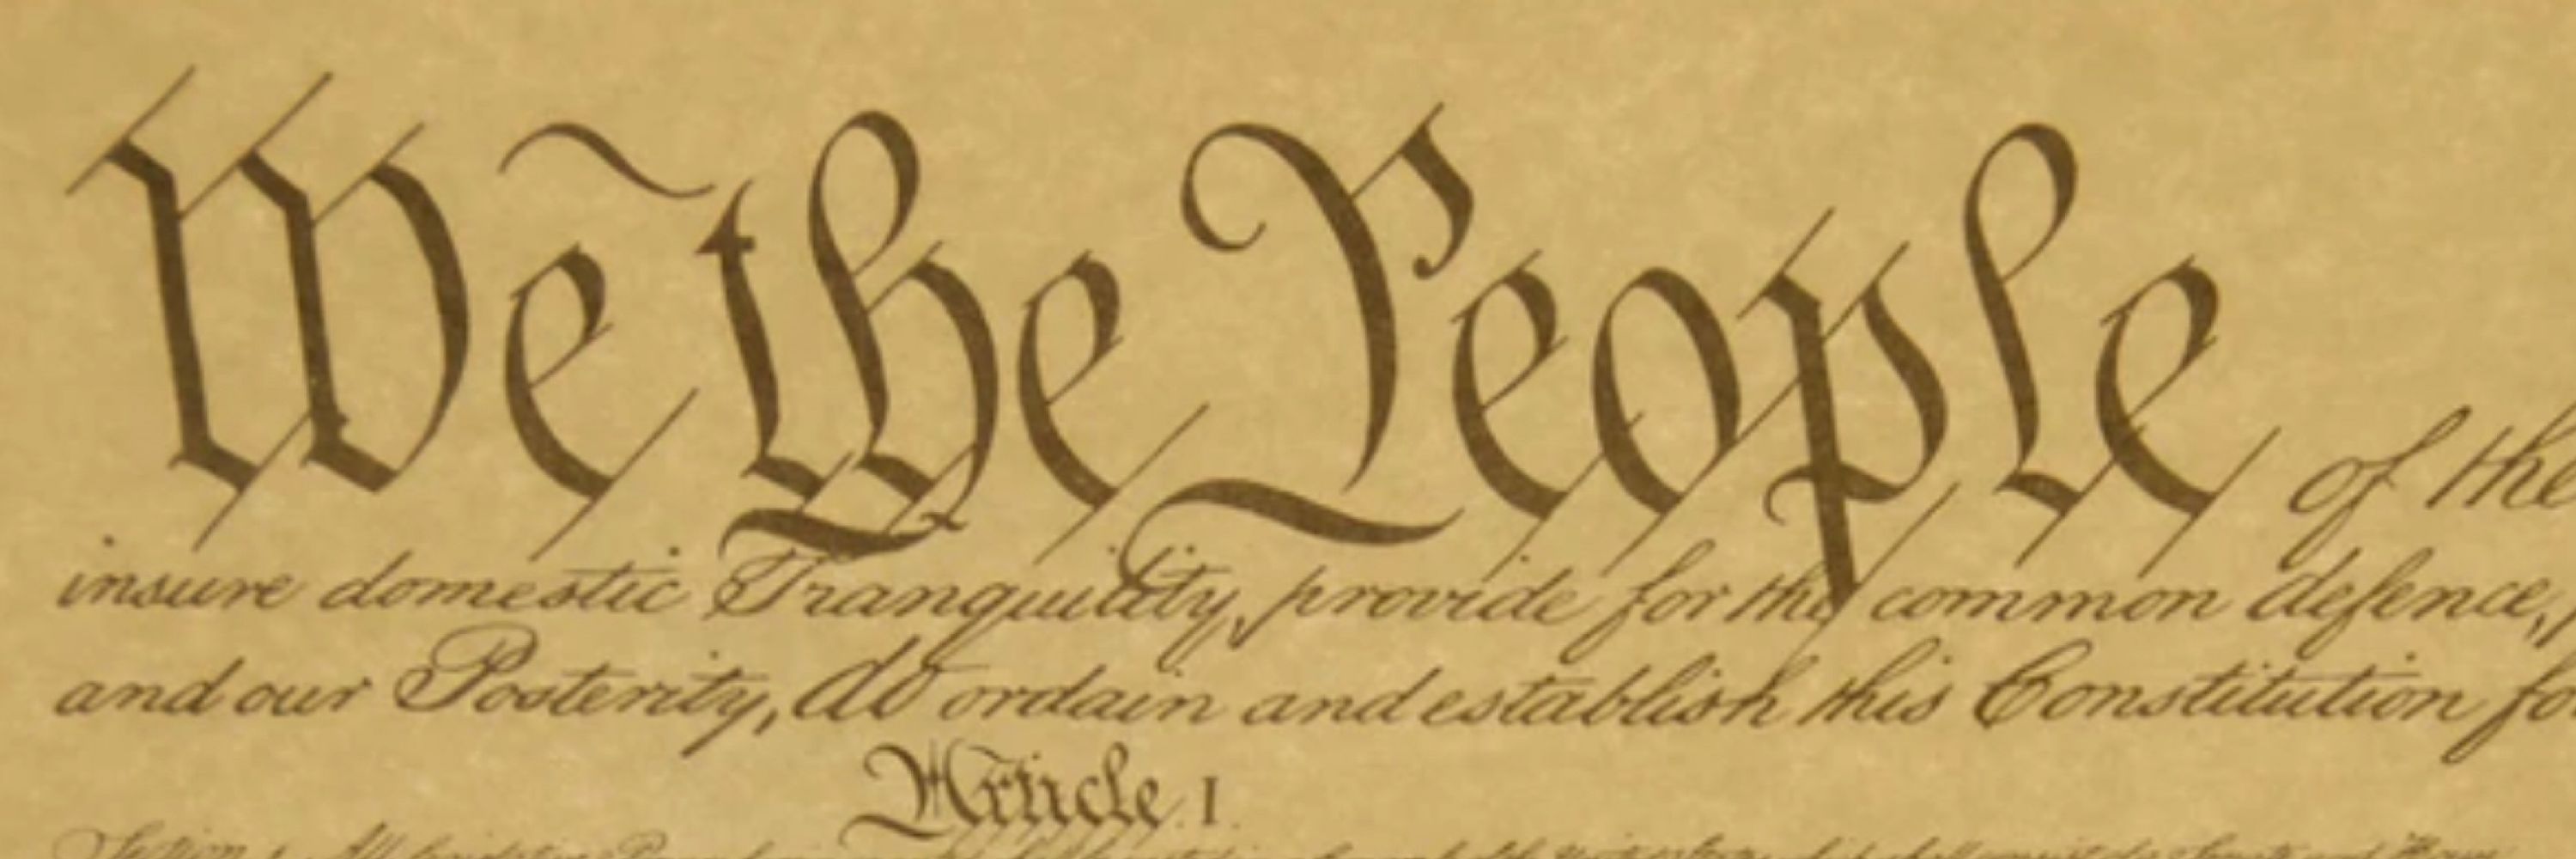 We the People of the
insure domestic Tranquility, provide for the common defence,
and our Posterity, do ordain and establish this Constitution fo
Article. I.
Section. All